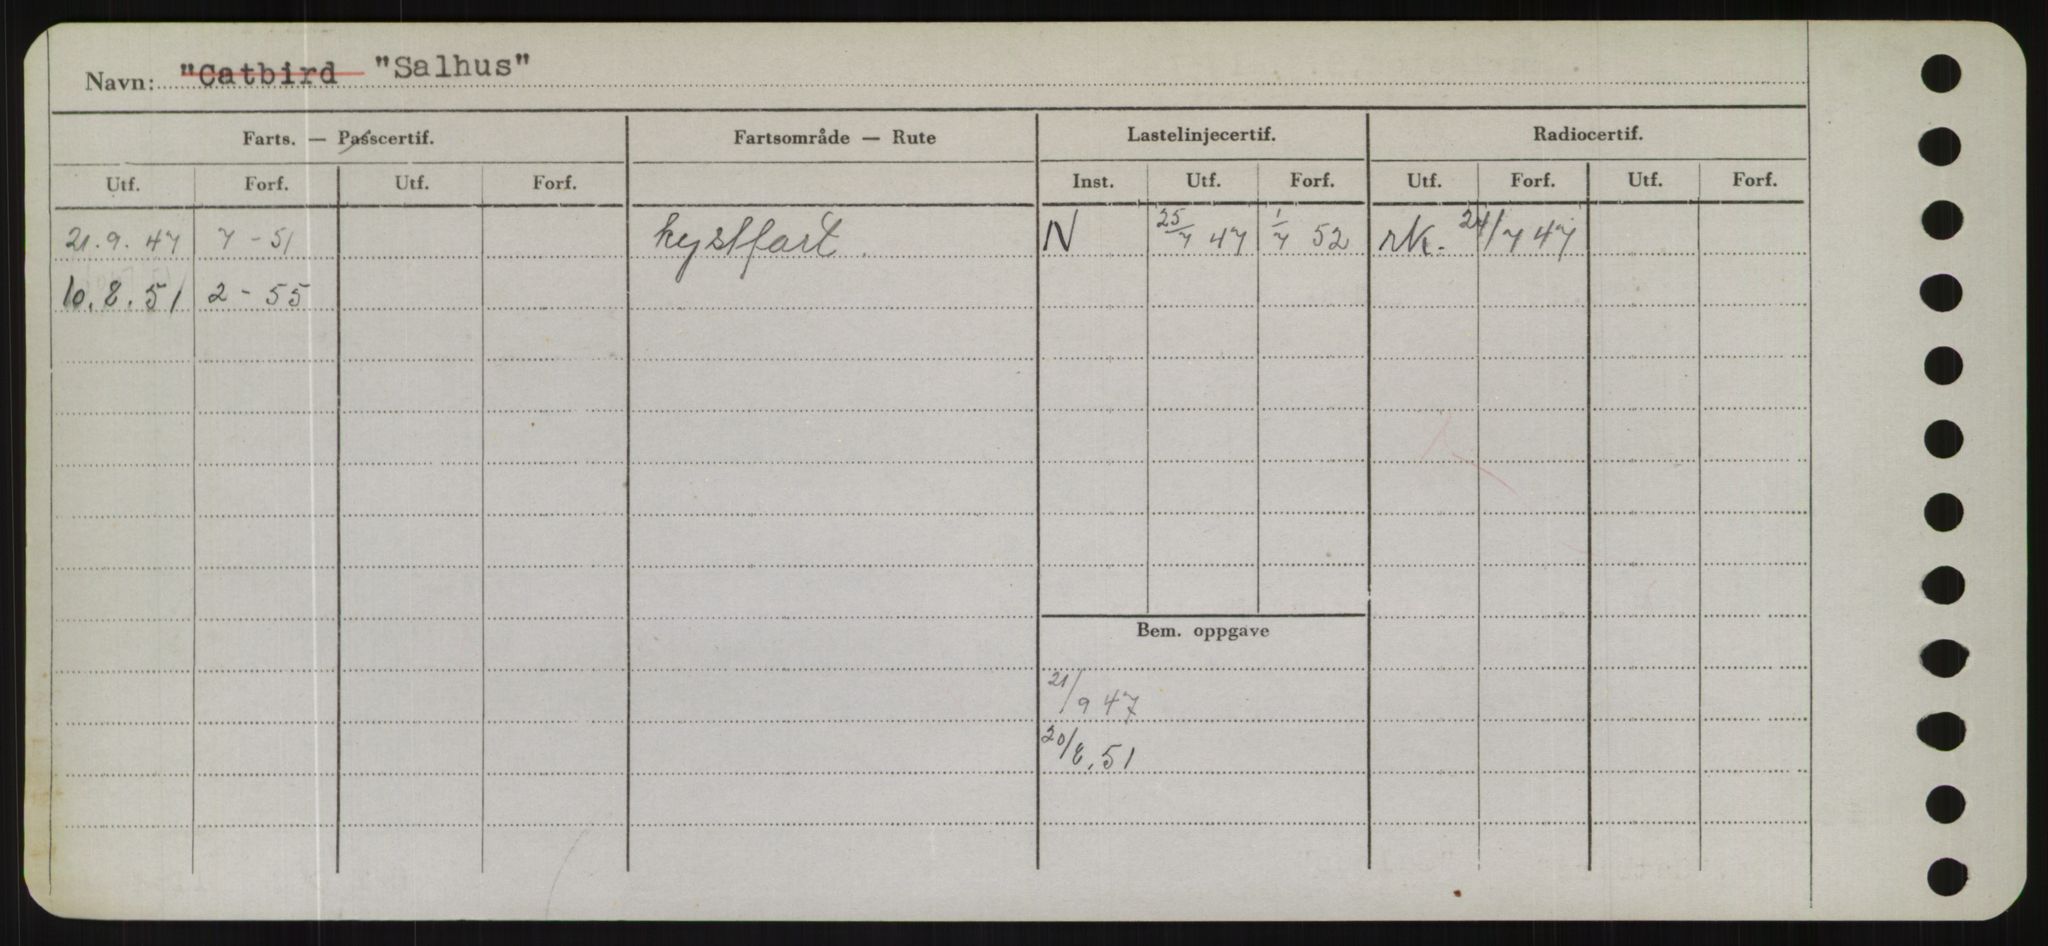 Navn: "Catbird "Salhus"
Farts. — Passcertif. Fartsområde — Rute Lastelinjecertif. Radiocertif.
Utf. Forf. Utf. Forf. Inst. Utf. Forf. Utf. Forf. Utf. Forf.
21.9.47 7-51 kystfart. N 25/7 47 1/7 52 rk. 24/7 47
10.8.51 2-55
Bem. oppgave
21/9 47
20/8.51